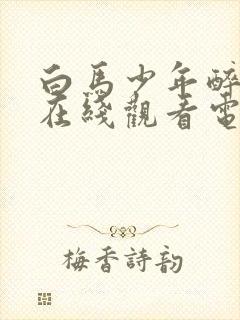 白馬少年醉
在綫觀看電
梅香詩韵